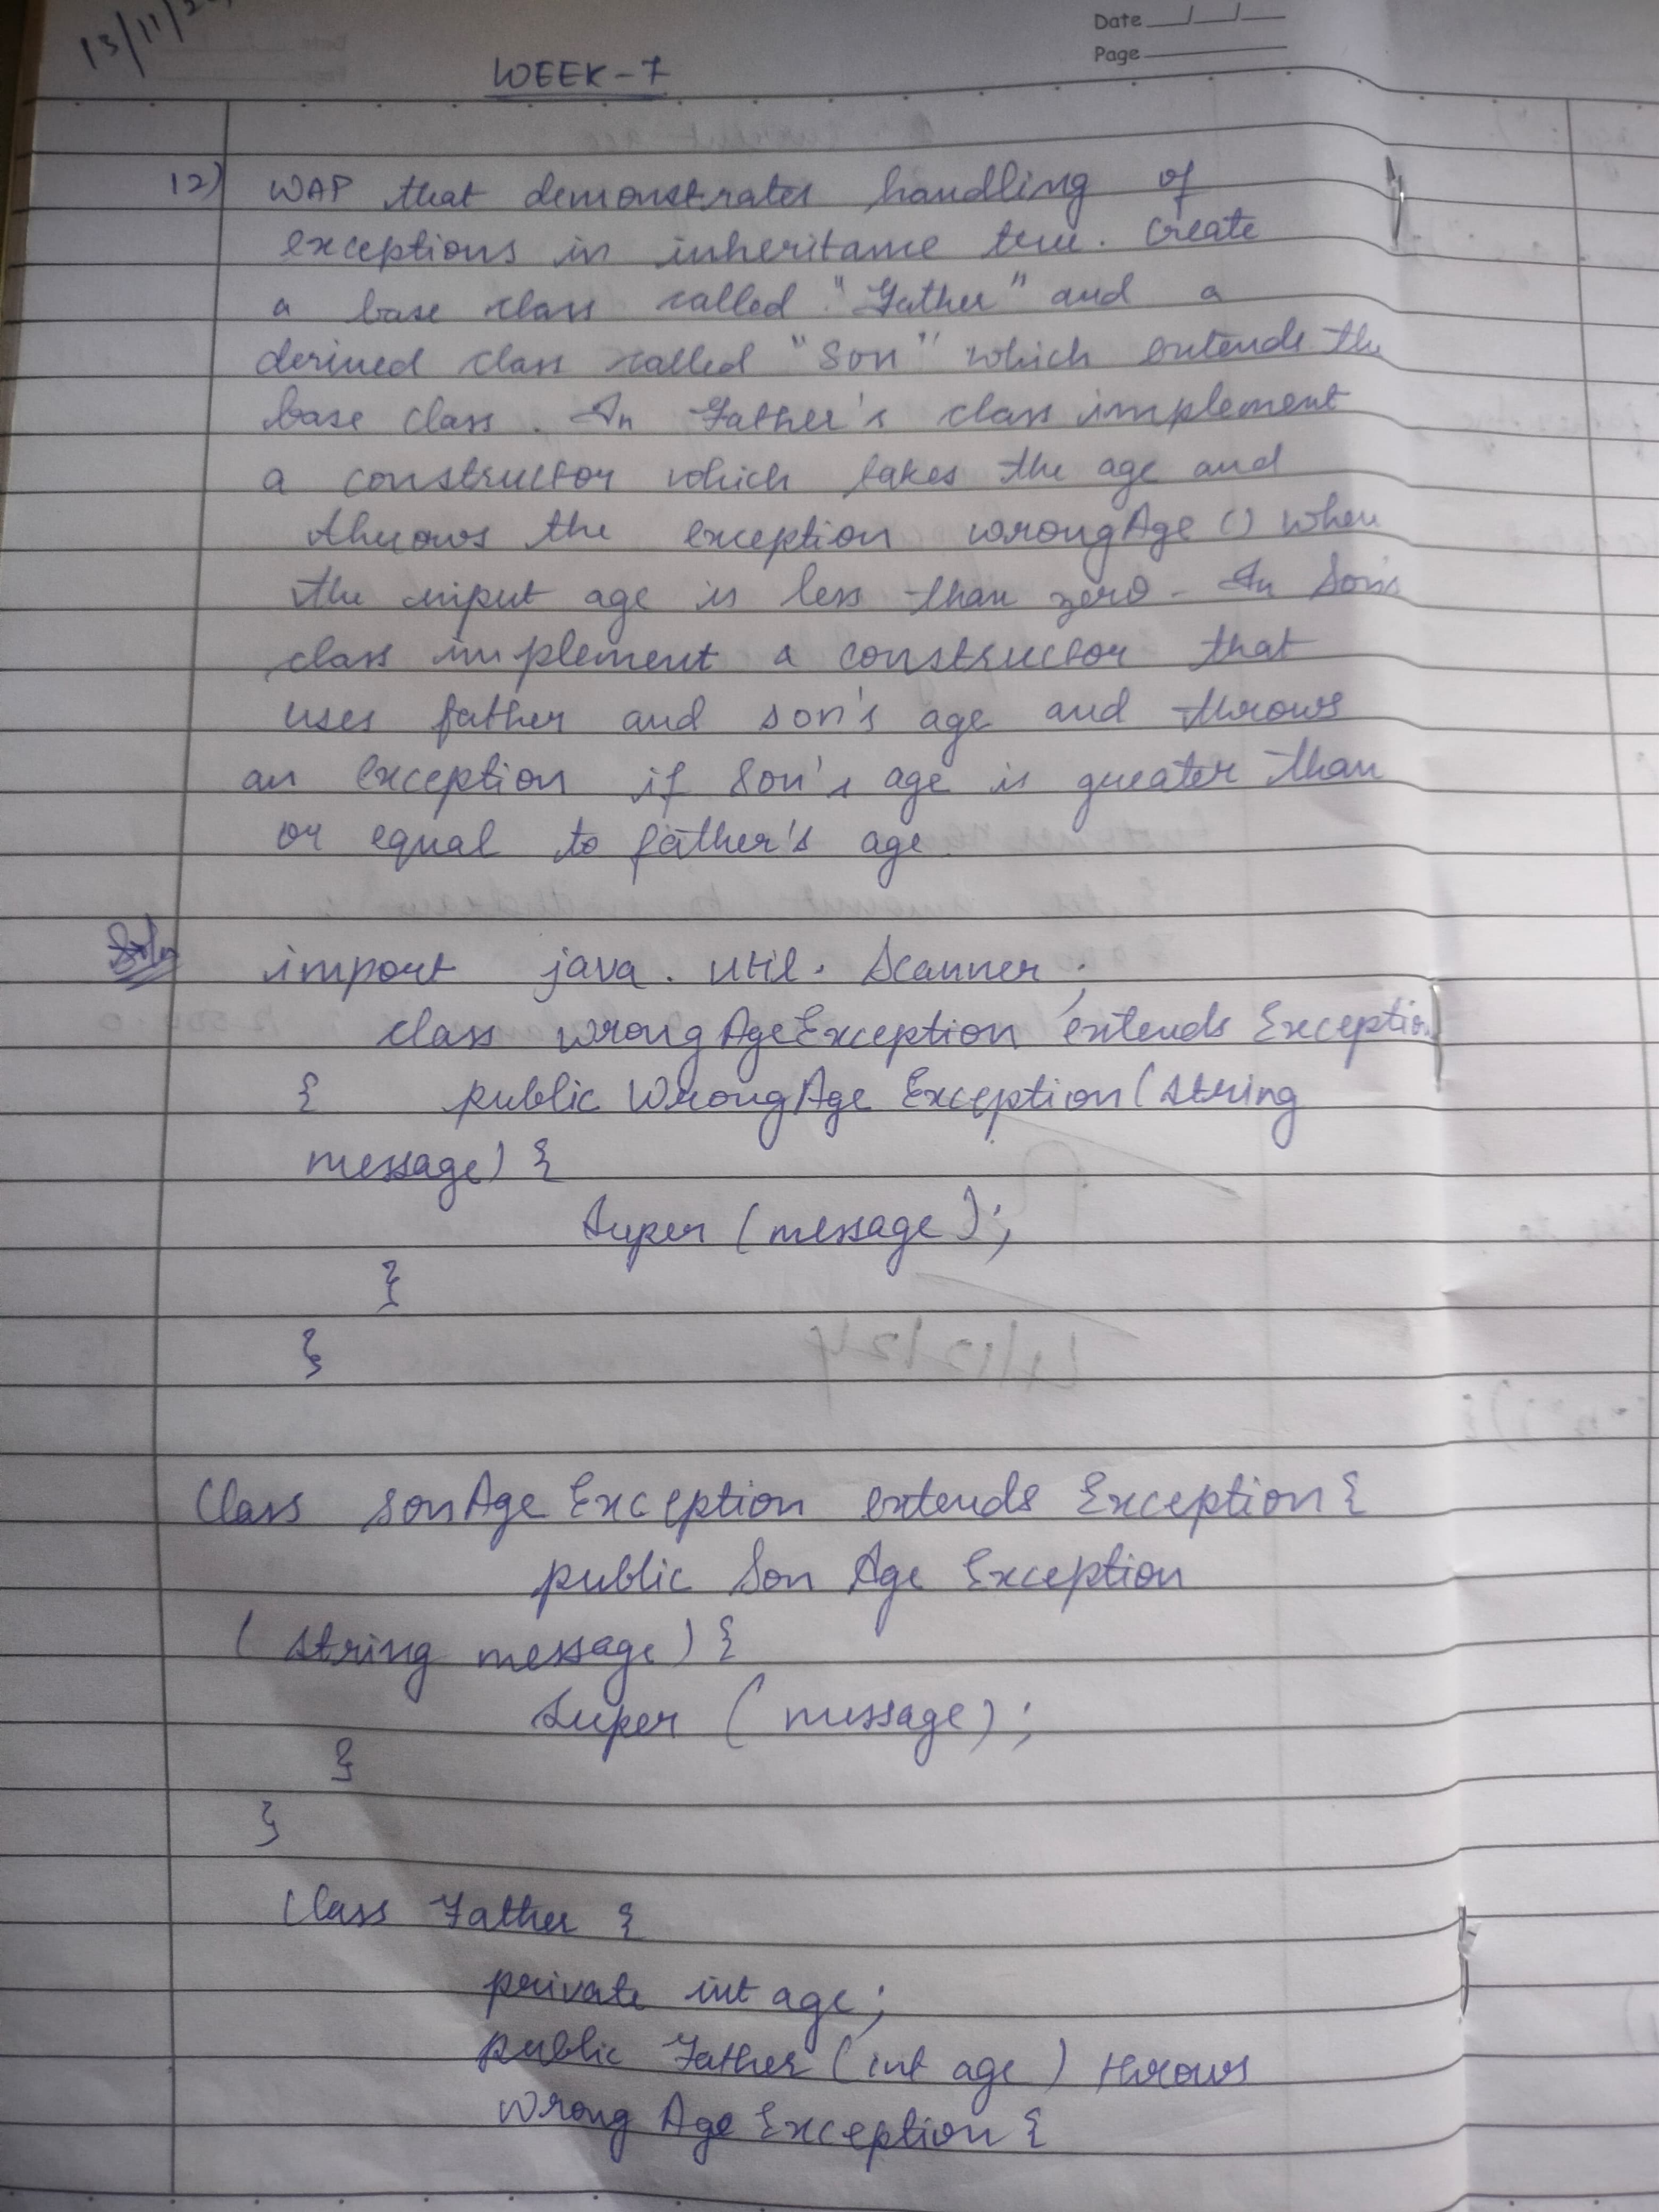 13/11/2
Date
Page
WEEK-7
12) WAP that demonstrates handling of
exceptions in inheritance tree. Create
a base class called "Father" and a
derived class called "Son" which extends the
base class. In Father's class implement
a constructor which takes the age and
throws the exception wrongAge() when
the input age is less than zero. In Son's
class implement a constructor that
uses father and son's age and throws
an exception if Son's age is greater than
or equal to father's age.
Soln import java.util.Scanner;
class WrongAgeException extends Exception
{ public WrongAge Exception (String
message) {
Super (message);
}
}
Class SonAge Exception extends Exception {
public Son Age Exception
(String message) {
Super (message);
}
}
Class Father {
private int age;
public Father (int age) throws
Wrong Age Exception {